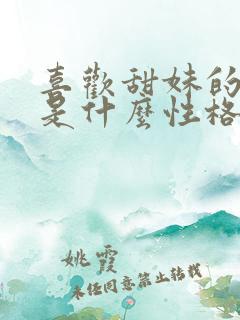 喜歡甜妹的
是什麼性格
姚霞
未任同意禁止转载